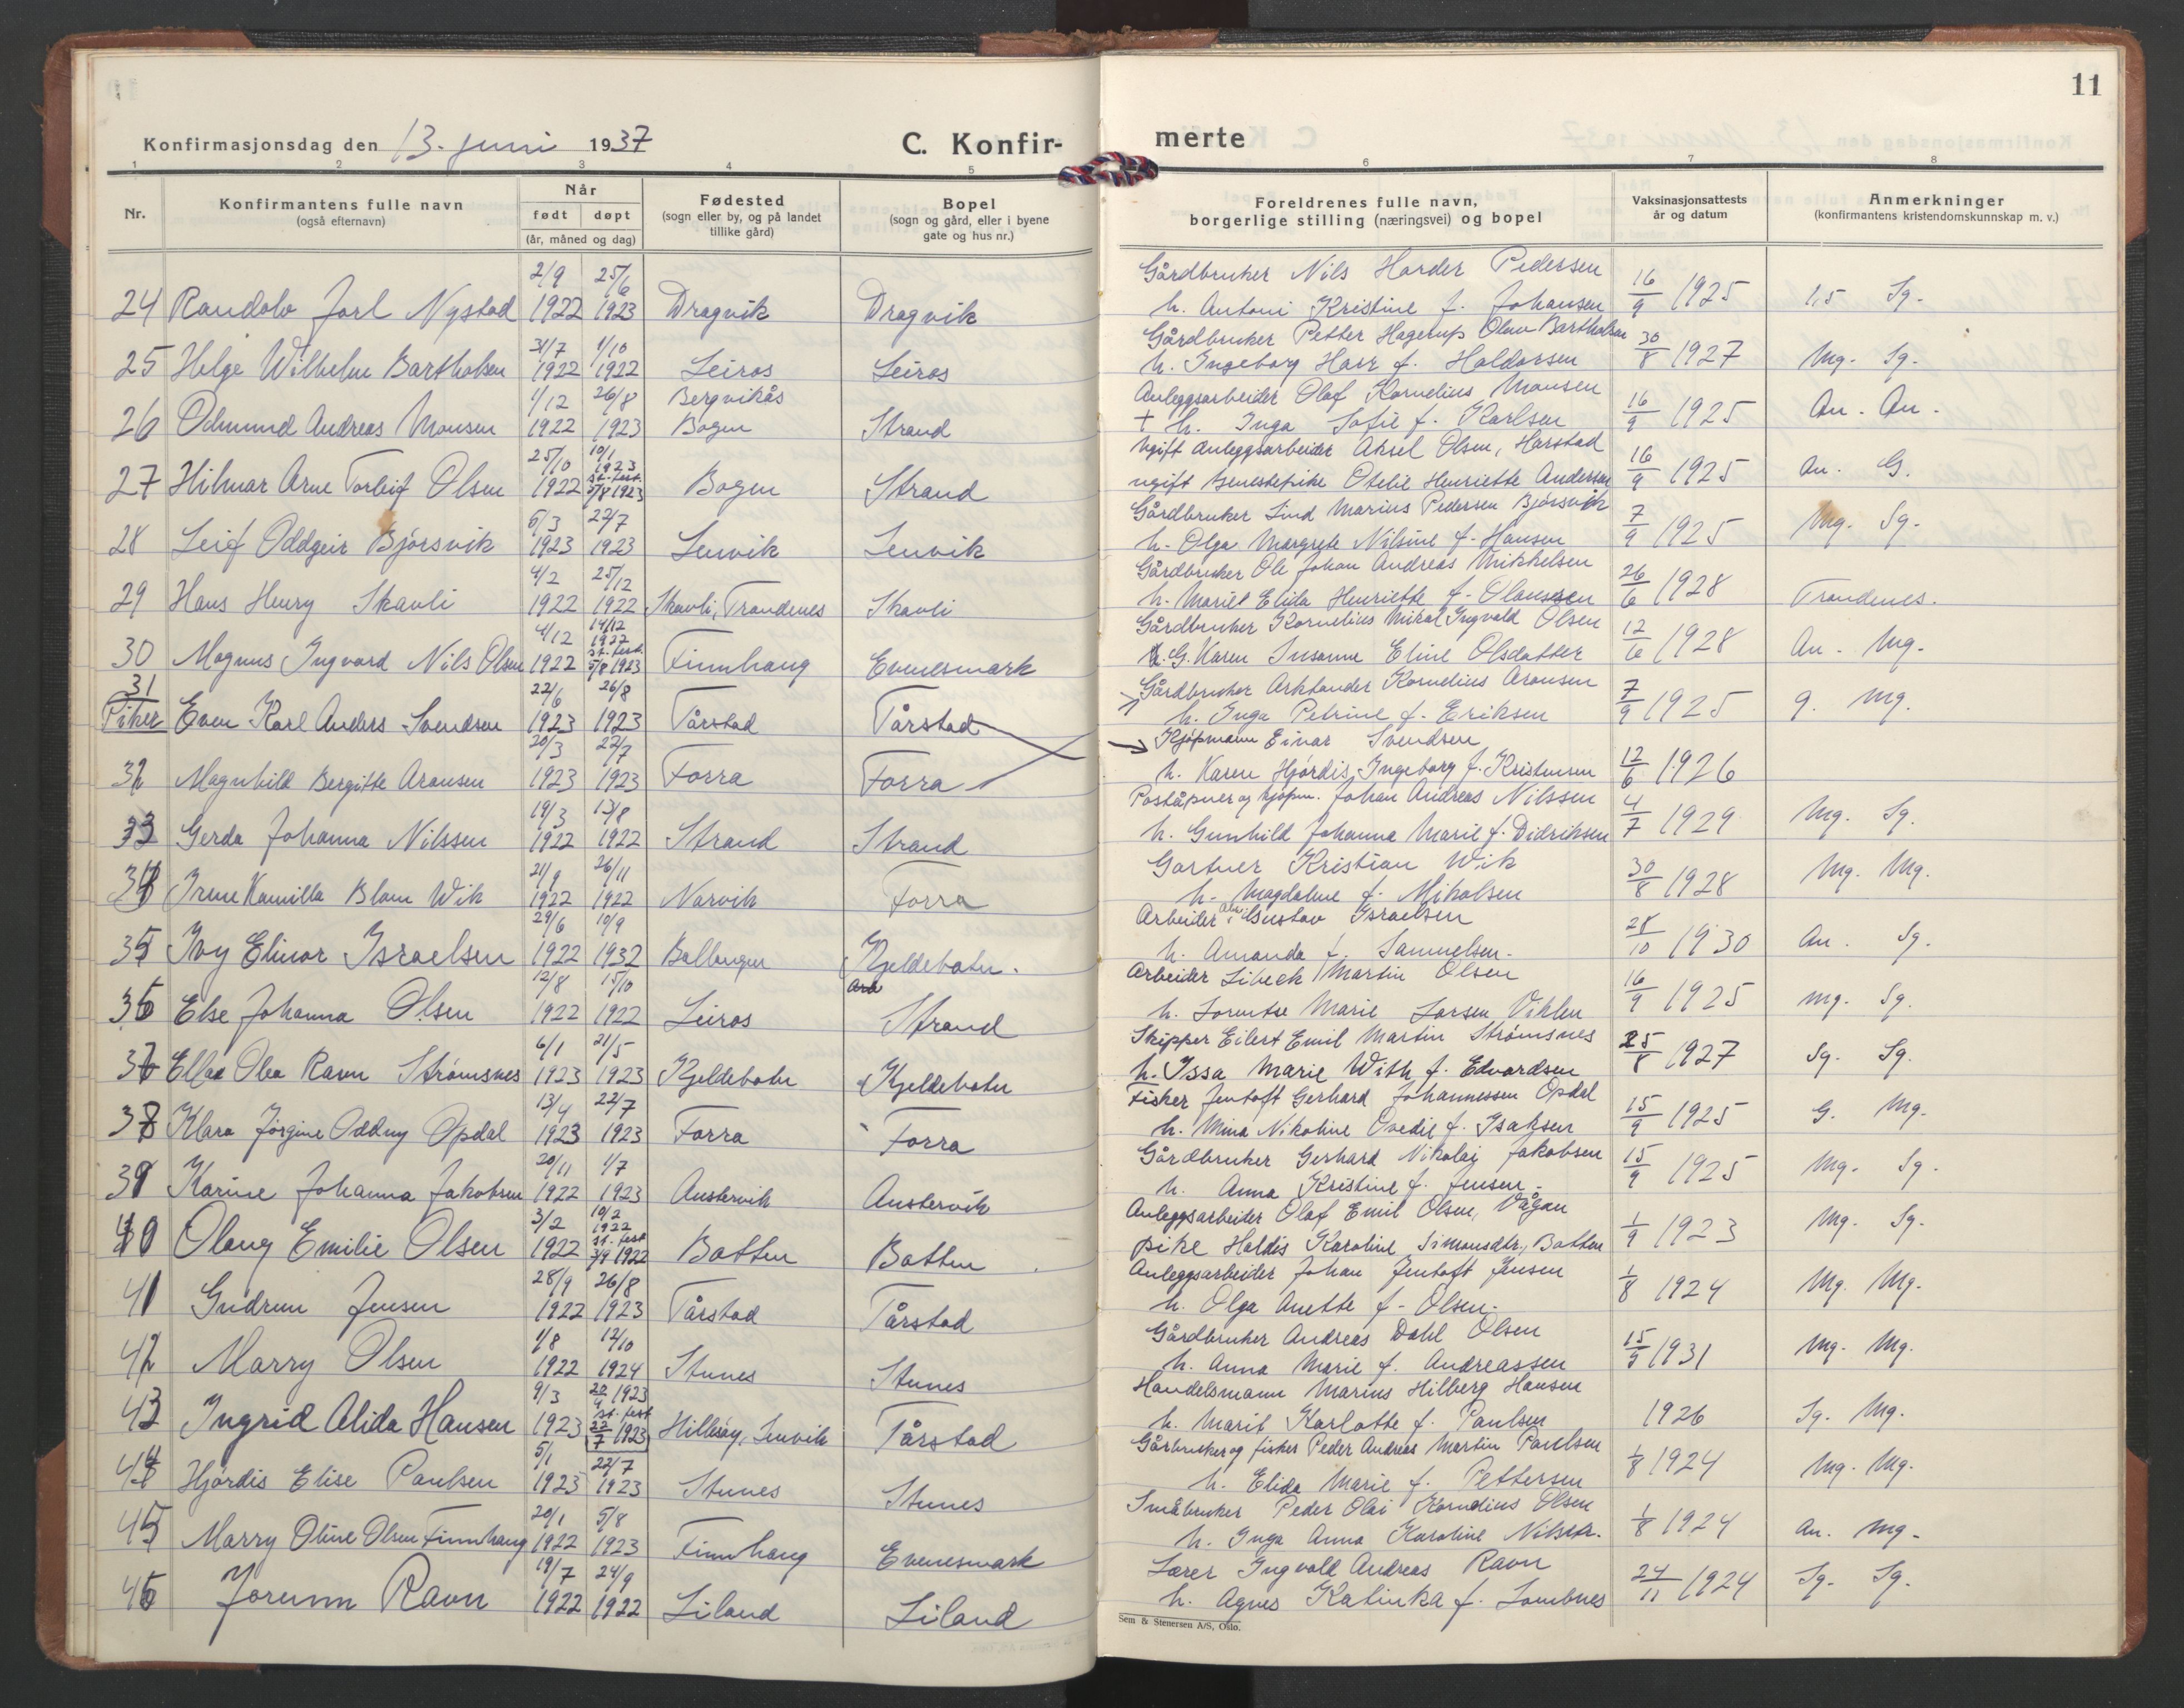 11
Konfirmasjonsdag den 13. juni 1937
C. Konfir-
merte
1 2 3 4 5 6 7 8
Nr.
Konfirmantens fulle navn
(også efternavn)
Når
født døpt
(år, måned og dag)
Fødested
(sogn eller by, og på landet
tillike gård)
Bopel
(sogn og gård, eller i byene
gate og hus nr.)
Foreldrenes fulle navn,
borgerlige stilling (næringsvei) og bopel
Vaksinasjonsattests
år og datum
Anmerkninger
(konfirmantens kristendomskunnskap m. v.)
2/9 25/6 Gårdbruker Nils Harder Pedersen
24 Randolv Jarl Nystad 1922 1923 Dragvik Dragvik h. Antoni Kristine f. Johansen 16/9 1925 1,5 Sg.
31/7 1/10 Gårdbruker Petter Hagerup Olsen Bartholsen
25 Helge Wilhelm Bartholsen 1922 1922 Leiros Leiros h. Ingeborg Harr f. Haldorsen 30/8 1927 Mg. Sg.
1/12 26/8 Bergvikås Anleggsarbeider Olaf Kornelius Monsen
26 Odmund Andreas Monsen 1922 1923 Bogen Strand + h. Inga Sofie f. Karlsen 16/9 1925 An. An.
25/10 10/1 1923 st. fest. Ugift anleggsarbeider Aksel Olsen, Harstad
27 Hilmar Arne Torleif Olsen 1922 5/8 1923 Bogen Strand ugift tjenestepike Otelie Henriette Andersen 16/9 1925 An. G.
5/3 22/7 Gårdbruker Lind Marius Pedersen Bjørsvik
28 Leif Oddgeir Bjørsvik 1923 1923 Lenvik Lenvik h. Olga Margrete Nilsine f. Hansen 7/9 1925 Mg. Sg.
4/2 25/12 Gårdbruker Ole Johan Andreas Mikkelsen
29 Hans Henry Skavli 1922 1922 Skavli, Trondenes Skavli h. Mariel Elida Henriette f. Olaussen 26/6 1928 Trondenes.
4/12 14/12 1922 st. fest. Gårdbruker Kornelius Mikal Ingvald Olsen
30 Magnus Ingvard Nils Olsen 1922 5/8 1923 Finnhaug Evenesmark h. G. Karen Susanne Eline Olsdatter 12/6 1928 An. Mg.
31 22/6 26/8 Gårdbruker Arktander Kornelius Aronsen
Piker Even Karl Anders Svendsen 1923 1923 Tårstad Tårstad h. Inga Petrine f. Eriksen 7/9 1925 g. Mg.
20/3 22/7 Kjøpmann Einar Svendsen
32 Magnhild Bergitte Aronsen 1923 1923 Forra Forra h. Karen Hjørdis Ingeborg f. Kristensen 12/6 1926
19/3 13/8 Poståpner og kjøpm. Johan Andreas Nilssen
33 Gerda Johanna Nilssen 1922 1922 Strand Strand h. Gunhild Johanna Marie f. Didriksen 4/7 1929 Mg. Sg.
21/9 26/11 Gartner Kristian Wik
34 Irene Kamilla Blom Wik 1922 1922 Narvik Forra h. Magdalene f. Mikalsen 30/8 1928 Mg. Mg.
29/6 10/9 Arbeider Gustav Israelsen
35 Ivy Elinor Israelsen 1922 1932 Ballangen Kjeldebotn. h. Amanda f. Samuelsen. 28/10 1930 An. Sg.
12/8 15/10 Arbeider Libeck Martin Olsen
36 Else Johanna Olsen 1922 1922 Leiros Strand h. Lorentse Marie Larsen Viklem 16/9 1925 Mg. Sg.
6/1 21/5 Skipper Eilert Emil Martin Strømsnes
37 Ellae Olea Ravn Strømsnes 1923 1923 Kjeldebotn Kjeldebotn h. Issa Marie With f. Edvardsen 25/8 1927 Sg. Sg.
13/4 22/7 Fisker Jentoft Gerhard Johannessen Opdal
38 Klara Jørgine Oddny Opdal 1923 1923 Forra Forra h. Mina Nikoline Ovedie f. Isaksen 15/9 1925 G. Mg.
20/11 1/7 Gårdbruker Gerhard Nikolai Jakobsen
39 Karine Johanna Jakobsen 1922 1923 Austervik Austervik h. Anna Kristine f. Jensen. 15/9 1925 Mg. Sg.
3/2 10/2 1922 st. fest Anleggsarbeider Olaf Emil Olsen, Vågan
40 Olaug Emilie Olsen 1922 3/9 1922 Botten Botten pike Haldis Karoline Simonsdtr., Botten 1/9 1923 Mg. Sg.
28/9 26/8 Anleggsarbeider Johan Jentoft Jensen
41 Gudrun Jensen 1922 1923 Tårstad Tårstad h. Olga Anette f. Olsen. 1/8 1924 Mg. Mg.
1/8 12/10 Gårdbruker Andreas Dahl Olsen
42 Marry Olsen 1922 1924 Stunes Stunes h. Anna Marie f. Andreassen 15/9 1931 Mg. Mg.
9/3 22/4 1923 st. fest Handelsmann Marius Hilberg Hansen
43 Ingrid Alida Hansen 1923 22/7 1923 Hillesøy, Lenvik Tårstad h. Marit Karlotte f. Paulsen 1926 Sg. Mg.
5/1 22/7 Gårbruker og fisker Peder Andreas Martin Paulsen
44 Hjørdis Elise Paulsen 1923 1923 Stunes Stunes h. Elida Marie f. Pettersen 1/8 1924 Mg. Mg.
20/1 5/8 Småbruker Peder Olai Kornelius Olsen
45 Marry Oline Olsen Finnhaug 1922 1923 Finnhaug Evenesmark h. Inga Anna Karoline Nilsdtr. 1/8 1924 An. Mg.
19/7 24/9 Lærer Ingvald Andreas Ravn
46 Jorunn Ravn 1922 1922 Liland Liland h. Agnes Katinka f. Sombnes 24/11 1924 Sg. Sg.
Sem & Stenersen A/S, Oslo.